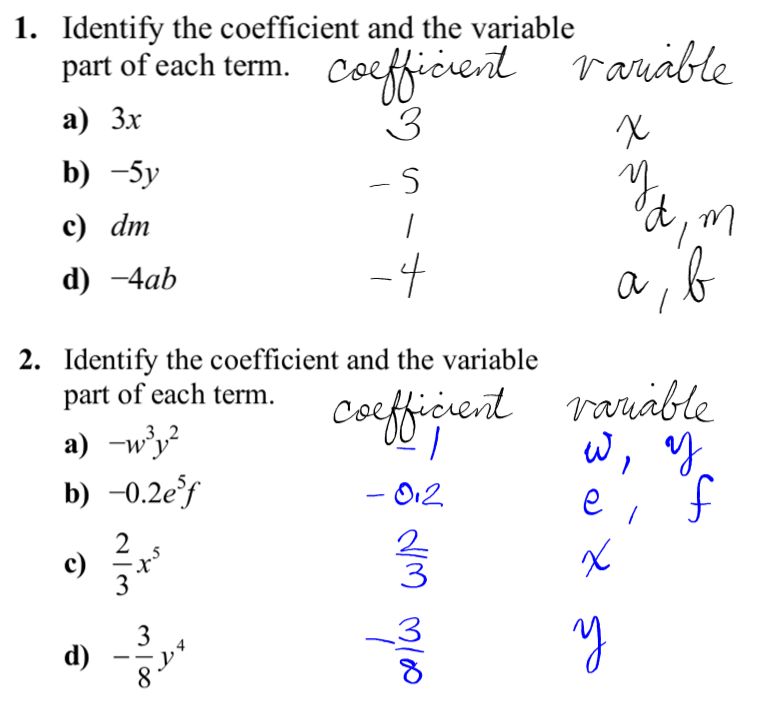 1. Identify the coefficient and the variable
part of each term. coefficient variable
a) 3x 3 x
b) −5y -5 y
c) dm 1 d, m
d) −4ab -4 a, b
2. Identify the coefficient and the variable
part of each term. coefficient variable
a) −w³y² -1 w, y
b) −0.2e⁵f -0.2 e, f
c) 2/3 x⁵ 2/3 x
d) −3/8 y⁴ -3/8 y